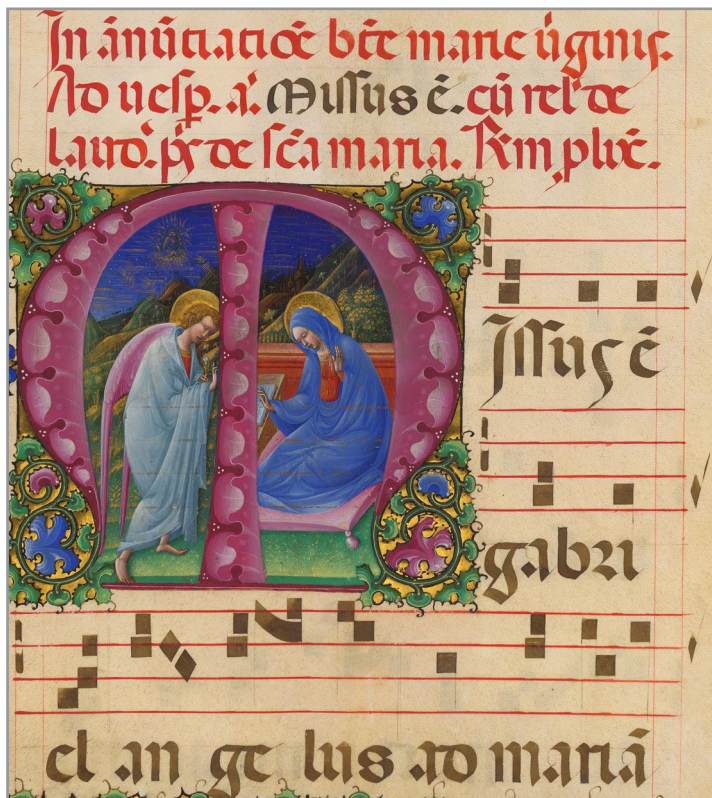 In ānūtiatiōē bt̄e marie ūginis.
Ad uesp̄. a᷎. Missus ē. cū rel' de
laud'. p̄s de sc̄a maria. R̄m, plix̄.
Missus ē
gabri
el an ge lus ad mariā